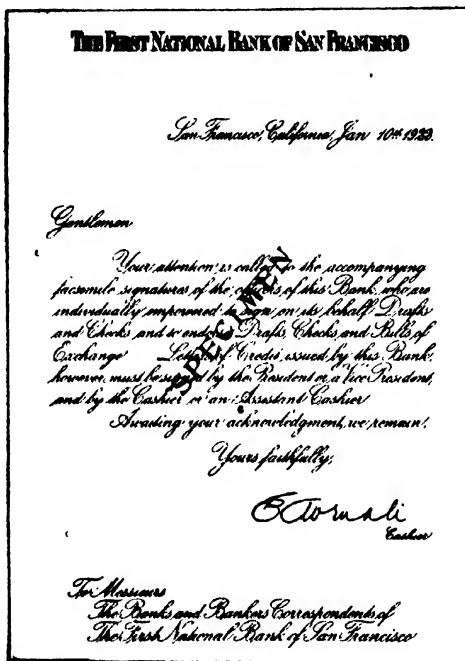 THE FIRST NATIONAL BANK OF SAN FRANCISCO
San Francisco, California, Jan 10th 1923.
Gentlemen
Your attention is called to the accompanying
facsimile signatures of the officers of this Bank, who are
individually empowered to sign on its behalf Drafts
and Checks and to endorse Drafts, Checks, and Bills of
Exchange Letters of Credit, issued by this Bank,
however, must be signed by the President or a Vice President,
and by the Cashier or an Assistant Cashier
Awaiting your acknowledgment, we remain,
Yours faithfully,
Cashier
To Messieurs
The Banks and Bankers Correspondents of
The First National Bank of San Francisco
SPECIMEN